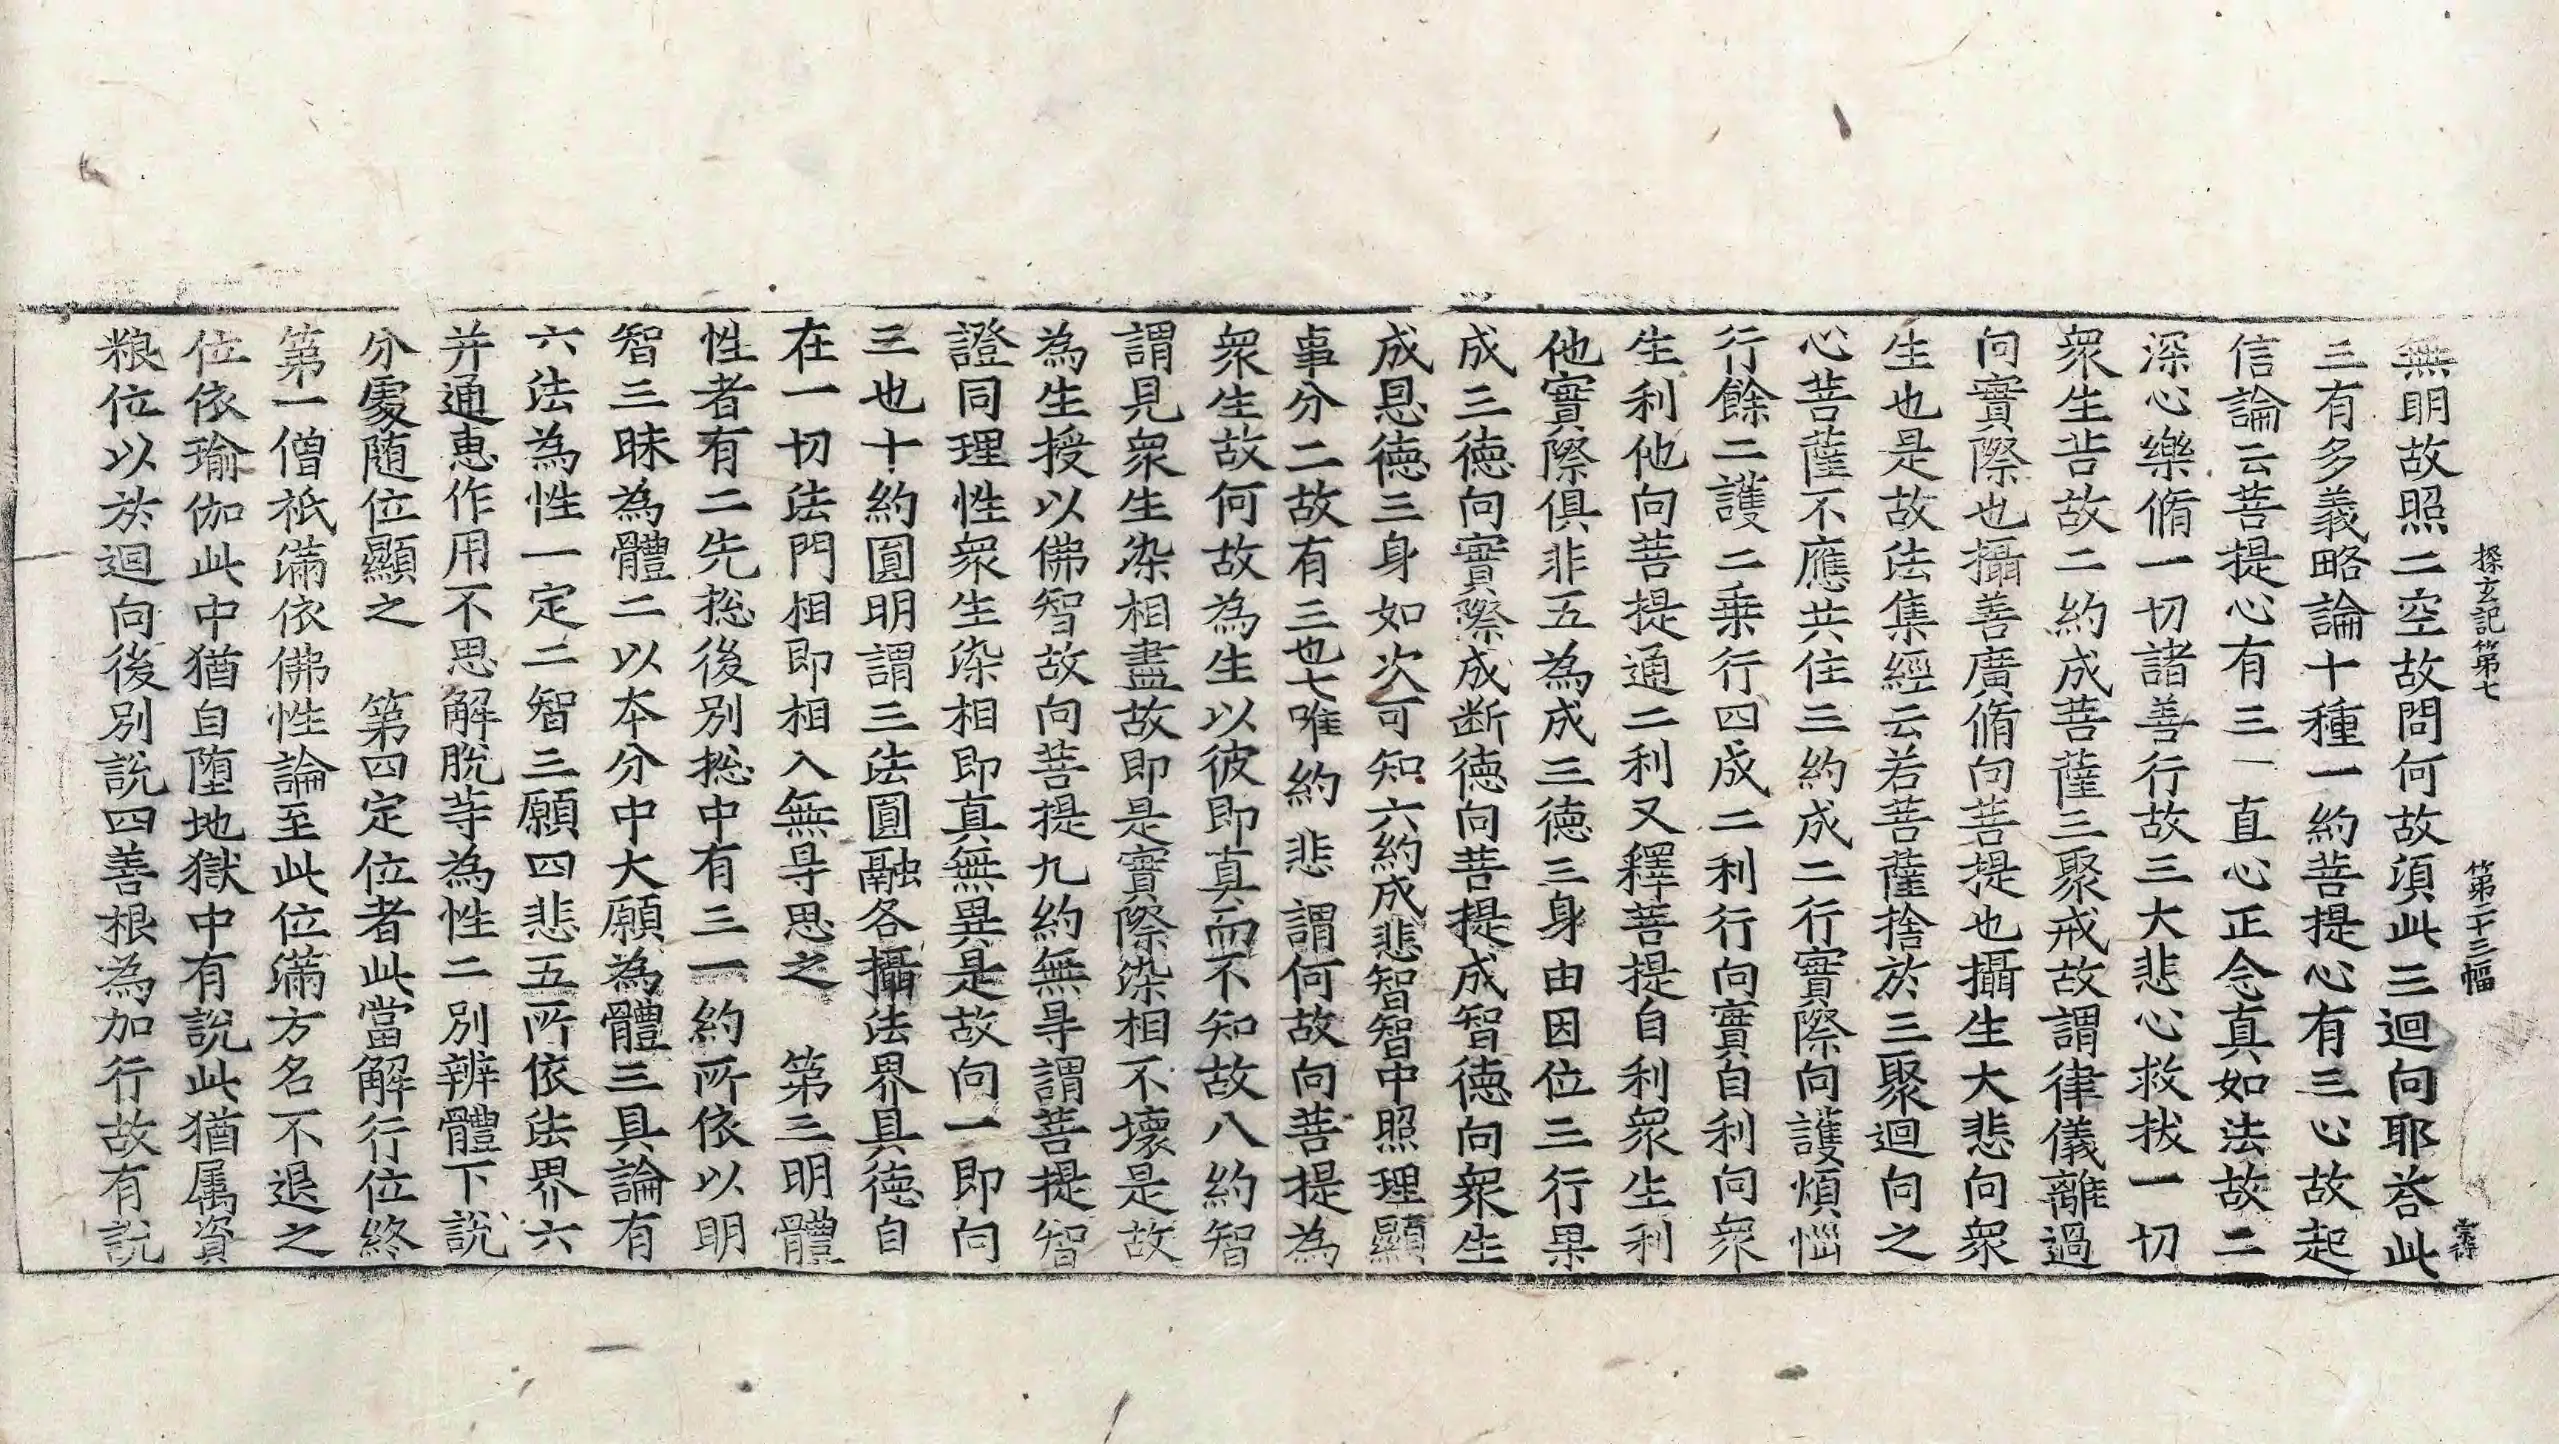 探玄記第七 第二十三幅
無明故照二空故問何故湏此三迴向耶荅此
三有多義略論十種一約菩提心有三心故起
信論云菩提心有三一直心正念真如法故二
深心樂脩一切諸善行故三大悲心救拔一切
衆生苦故二約成菩薩三聚戒故謂律儀離過
向實際也攝善廣脩向菩提也攝生大悲向衆
生也是故法集經云若菩薩捨於三聚迴向之
心菩薩不應共住三約成二行實際向護煩惱
行餘二護二乗行四成二利行向實自利向衆
生利他向菩提通二利又釋菩提自利衆生利
他實際俱非五為成三德三身由因位三行果
成三德向實際成断德向菩提成智德向衆生
成恩德三身如次可知六約成悲智智中照理顯
事分二故有三也七唯約悲謂何故向菩提為
衆生故何故為生以彼即真而不知故八約智
謂見衆生染相盡故即是實際染相不壞是故
為生授以佛智故向菩提九約無㝵謂菩提智
證同理性衆生染相即真無異是故向一即向
三也十約圓明謂三法圓融各攝法界具德自
在一切法門相即相入無㝵思之 第三明體
性者有二先捴後別捴中有三一約所依以明
智三昧為體二以本分中大願為體三具論有
六法為性一定二智三願四悲五所依法界六
并通恵作用不思解脫等為性二別辨體下說
分處随位顯之 第四定位者此當解行位終
第一僧祇滿依佛性論至此位滿方名不退之
位依瑜伽此中猶自墮地獄中有說此猶属資
粮位以於迴向後別說四善根為加行故有說